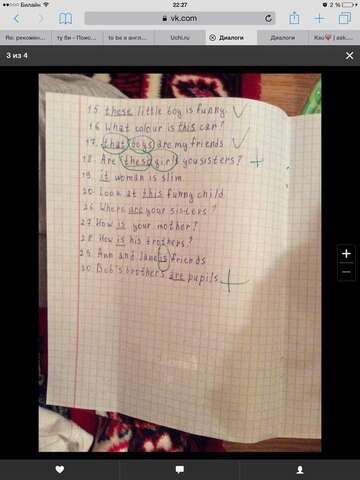 Билайн
22:27
2 %
vk.com
Re: рекомен...
ту би - Поис...
to be в англ...
Uchi.ru
Диалоги
Диалоги
3 из 4
15. these little boy is funny.
16 What colour is this car?
17. that boys are my friends
18. Are these girls you sisters?
19. it woman is slim
20. Look at this funny child
26. Where are your sisters?
27 How is your mother?
28. How is his brothers?
29. Ann and Jane is friends
30. Bob's brothers are pupils